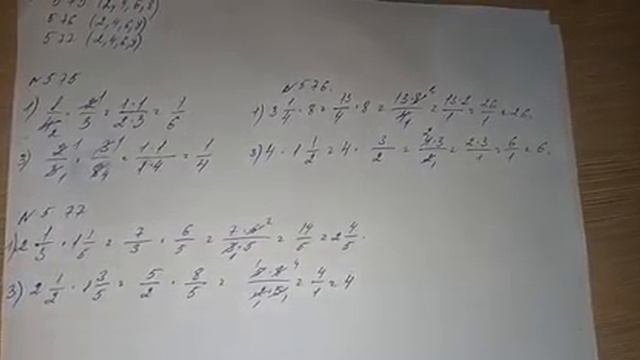 575 (2,4,6,8)
576 (2,4,6,8)
577 (2,4,6,8)
N 575
1) 1/4₂ · 2¹/3 = 1·1/2·3 = 1/6
3) 2¹/3₁ · 3¹/8₄ = 1·1/1·4 = 1/4
N 576.
1) 3 1/4 · 8 = 13/4 · 8 = 13·8²/4₁ = 13·2/1 = 26/1 = 26.
3) 4 · 1 1/2 = 4 · 3/2 = ²4·3/2₁ = 2·3/1 = 6/1 = 6.
N 577
1) 2 1/3 · 1 1/5 = 7/3 · 6/5 = 7·6²/3₁·5 = 14/5 = 2 4/5.
3) 2 1/2 · 1 3/5 = 5/2 · 8/5 = ¹5·8⁴/2₁·5₁ = 4/1 = 4